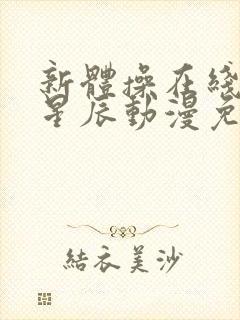 新體操在綫
星辰動漫免
結衣美沙